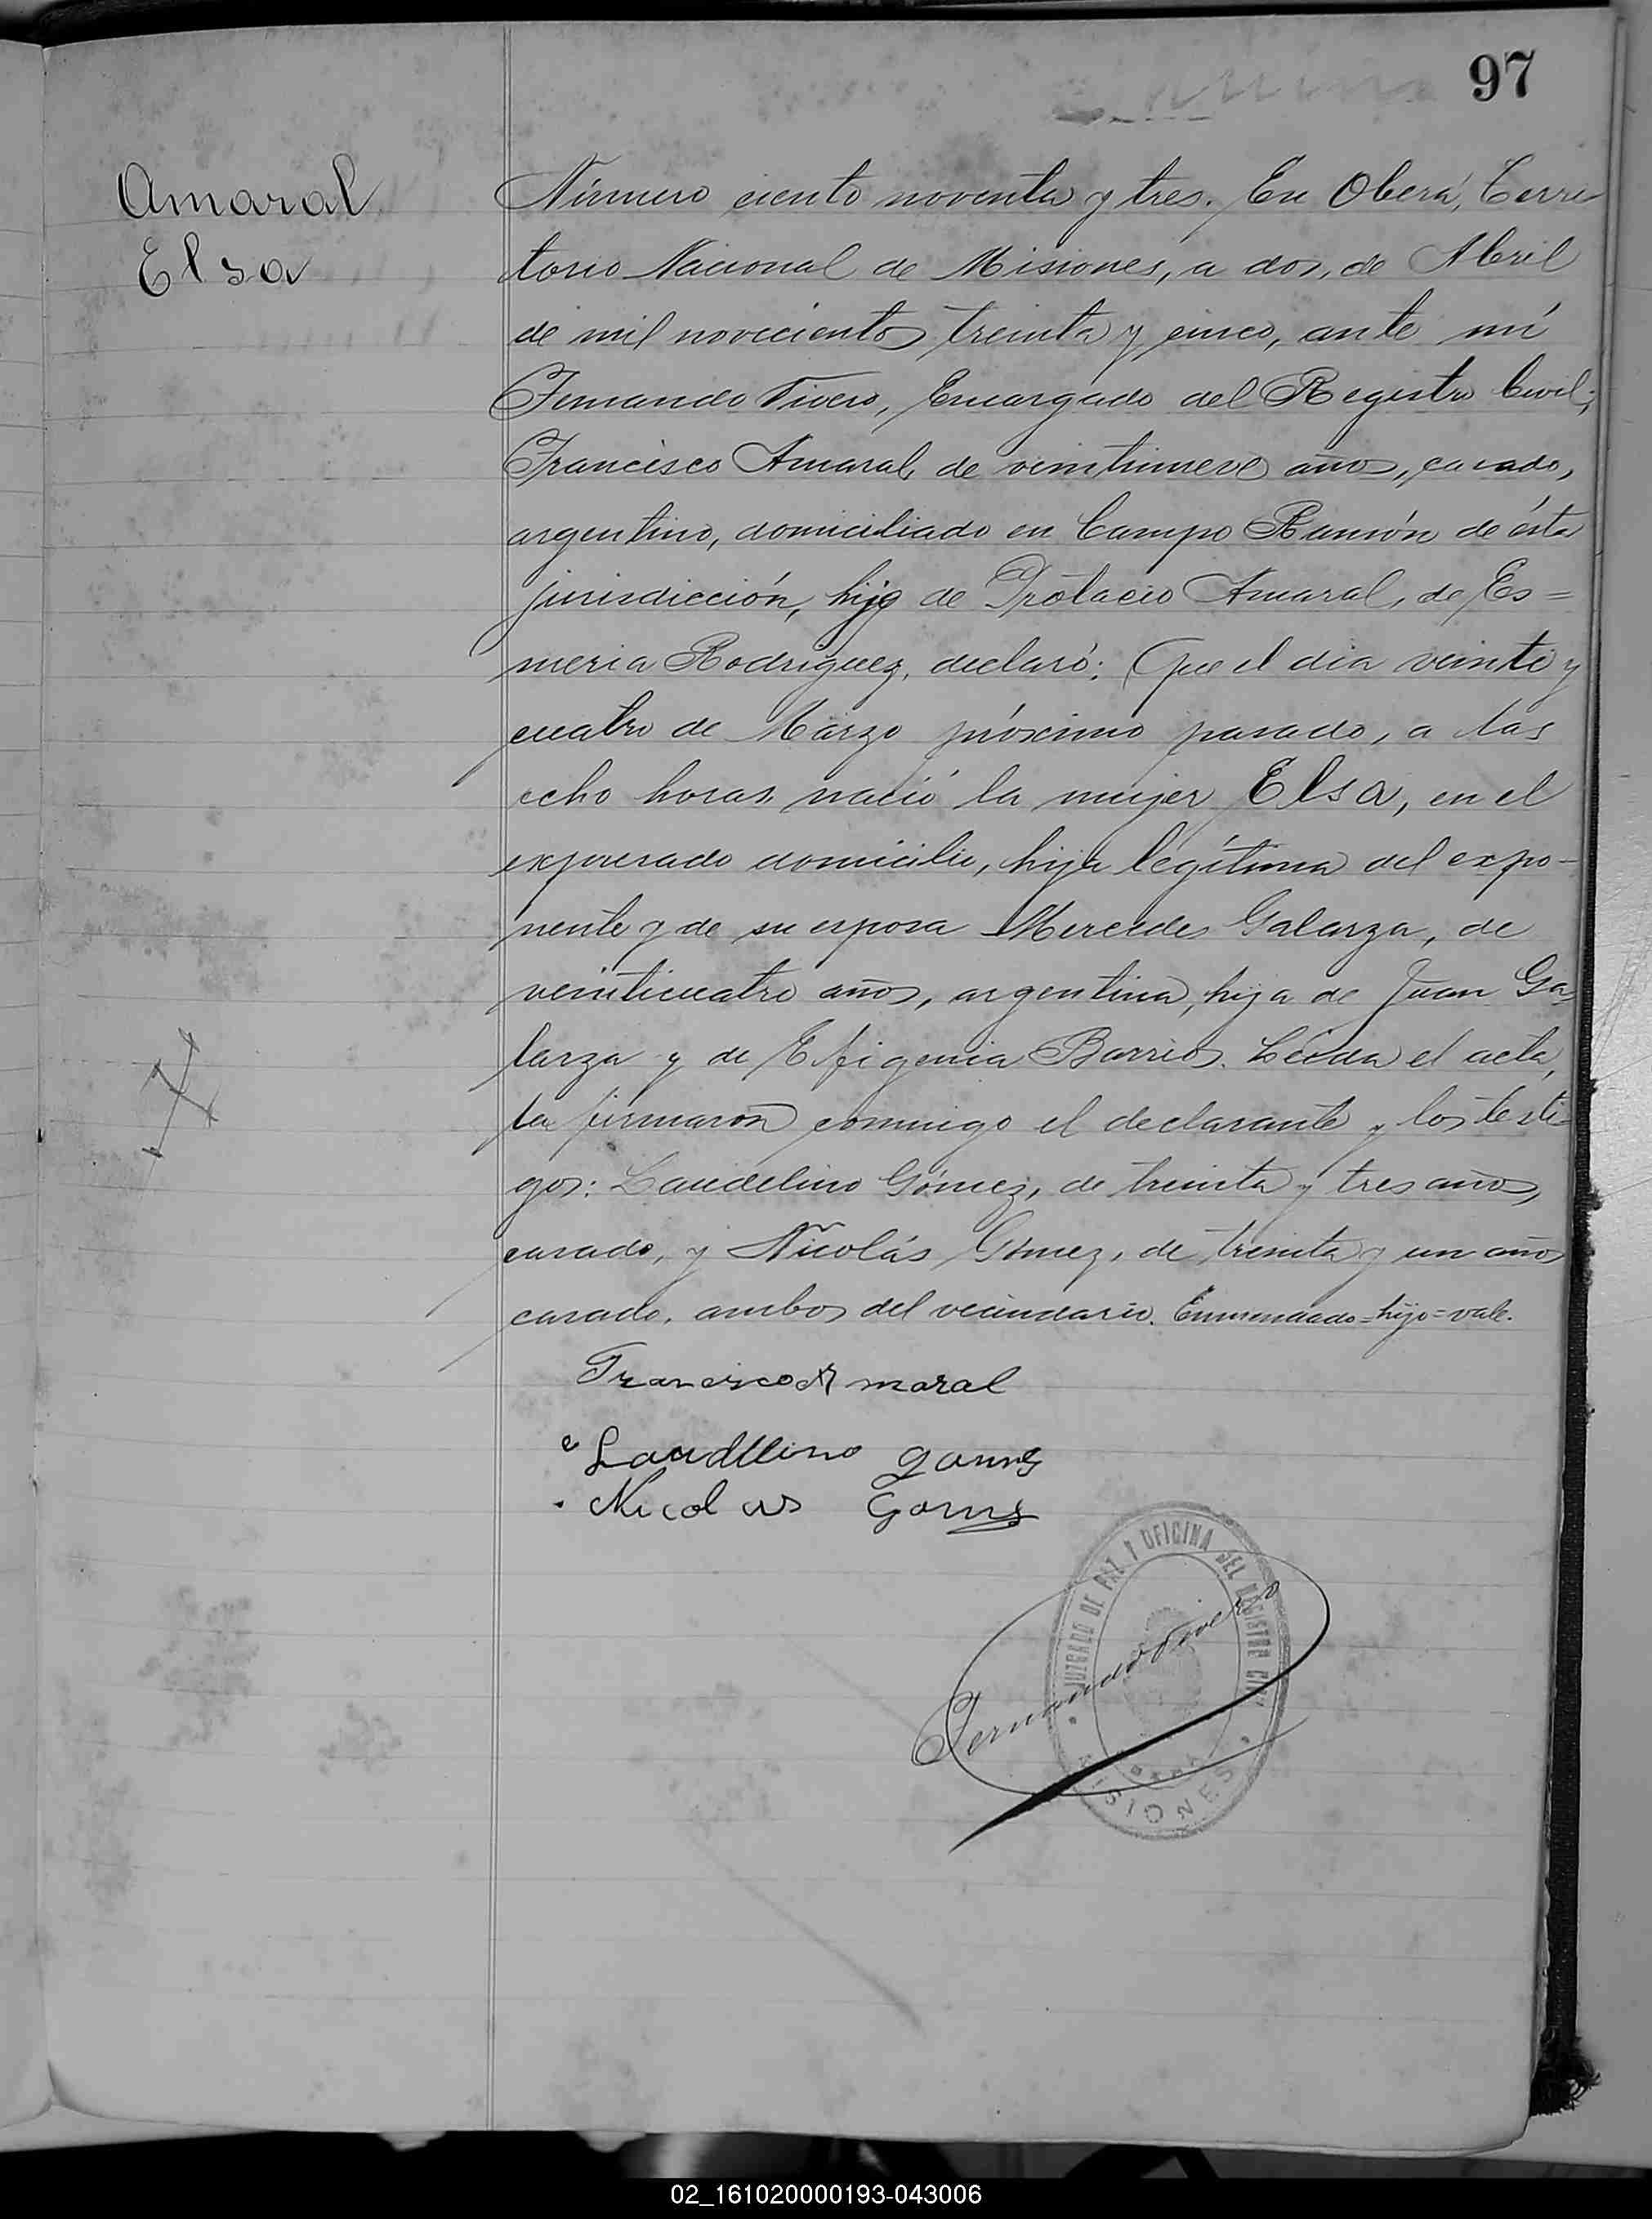 97
Amaral
Elsa
Número ciento noventa y tres. En Oberá, Terri
torio Nacional de Misiones, a dos, de Abril
de mil novecientos treinta y cinco, ante mí
Fernando Tivero, Encargado del Registro Civil;
Francisco Amaral, de veintinueve años, casado,
argentino, domiciliado en Campo Ramón de ésta
jurisdicción, hijo de Protacio Amaral, de Es=
meria Rodriguez, declaró: Que el día veinte y
cuatro de Marzo próximo pasado, a las
ocho horas, nació la mujer Elsa, en el
expresado domicilio, hija legítima del expo-
nente y de su esposa Mercedes Galarza, de
veinticuatro años, argentina, hija de Juan Ga
larza y de Efigenia Barrios. Leída el acta,
la firmaron conmigo el declarante y los testi-
gos: Laudelino Gómez, de treinta y tres años,
casado, y Nicolás Gómez, de treinta y un años
casado, ambos del vecindario. Enmendado=hijo=vale.
Francisco Amaral
Laudelino gomes
Nicolas Gomes
JUZGADO DE PAZ Y OFICINA DEL REGISTRO CIVIL
Fernando Tivero
MISIONES
02_161020000193-043006